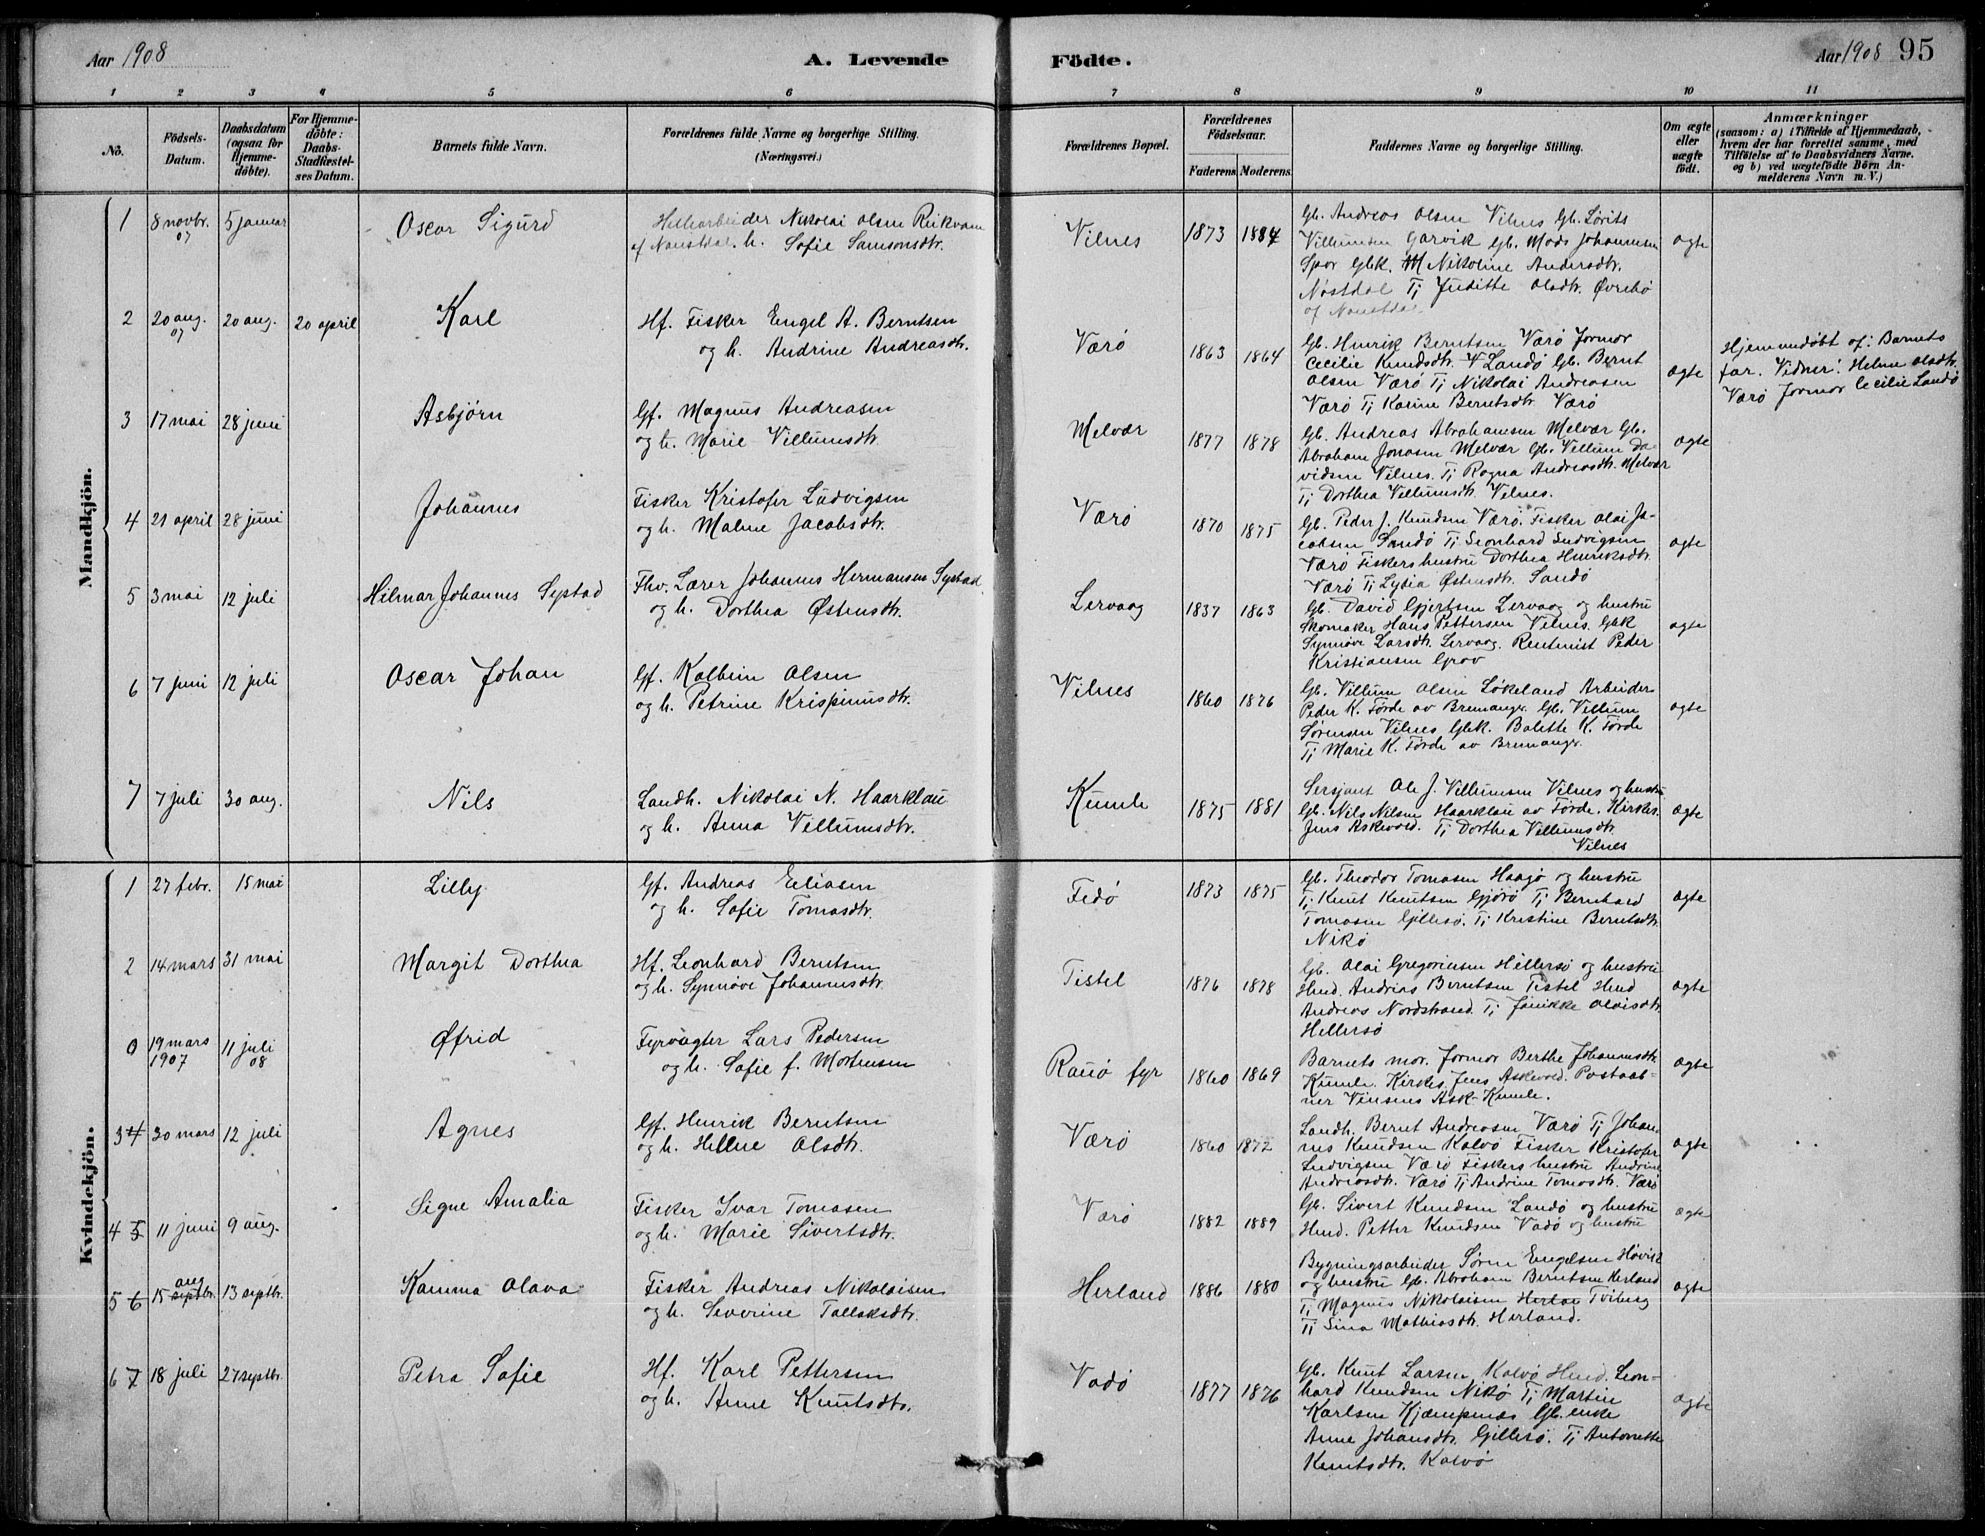 Aar 1908
A. Levende
Födte.
Aar 1908 95
1 2 3 4 5 6 7 8 9 10 11
No.
Födsels-
Datum.
Daabsdatum
(ogsaa for
Hjemme-
döbte).
For Hjemme-
döbte:
Daabs-
Stadfæstel-
ses Datum.
Barnets fulde Navn.
Forældrenes fulde Navne og borgerlige Stilling.
(Næringsvei.)
Forældrenes Bopæl.
Forældrenes
Födselsaar.
Faderens. Moderens.
Faddernes Navne og borgerlige Stilling.
Om ægte
eller
uægte
födt.
Anmærkninger
(saasom: a) i Tilfælde af Hjemmedaab,
hvem der har forrettet samme, med
Tilföielse af to Daabsvidners Navne.
og b) ved uægtefödte Börn An-
melderens Navn m. V.)
Mandkjön.
1 8 novbr. 07 5 januar Oscar Sigurd
Nikolai Olsen Rukvam
af Naustdal. h. Sofie Samsonsdtr.
Vilnes 1873 1884
Gb. Andreas Olsen Vilnes Gb. Lorits
Villumsen Garvik Gb. Mads Johannesen
Spor Gbk. Nikoline Andersdtr.
Nøstdal Tj Juditte Olsdtr. Øvrebø
af Naustdal
ægte
2 20 aug. 07 20 aug. 20 april Karl
Hf. Fisker Engel A. Berntsen
og h. Andrine Andreasdtr.
Værø 1863 1864
Gb. Henrik Berntsen Værø Jormor
Cecilie Knudsdtr. Landø Gb. Bernt
Olsen Værø Tj Nikolai Andreasen
Værø Tj Karine Berntsdtr. Værø
ægte
Hjemmedøbt af: Barnets
far. Vidner: Helene Olsdtr.
Værø Jormor Cecilie Landø
3 17 mai 28 juni Asbjørn
Gf. Magnus Andreasen
og h. Marie Villumsdtr.
Melvær 1877 1878
Gb. Andreas Abrahamsen Melvær Gb.
Abraham Jonasen Melvær Gb. Villum Da-
vidsen Vilnes. Tj Ragna Andreasdtr. Melvær
Tj Dorthea Villumsdtr. Vilnes.
ægte
4 21 april 28 juni Johannes
Fisker Kristofer Ludvigsen
og h. Malene Jacobsdtr.
Værø 1870 1875
Gb. Peder J. Knudsen Værø. Fisker Olai Ja-
cobsen Sandø Tj Leonhard Ludvigsen
Værø Fiskers hustru Dorthea Henriksdtr.
Værø Tj Lydia Østensdtr. Sandø
ægte
5 3 mai 12 juli Hilmar Johannes Systad
Fhv. Lærer Johannes Hermansen Systad
og h. Dorthea Østensdtr.
Lervaag 1837 1863
Gb. David Gjertsen Lervaag og hustru
Skomaker Hans Pettersen Vilnes. Gbk
Synnøve Larsdtr. Lervaag. Rentenist Peder
Kristiansen Grov
ægte
6 7 juni 12 juli Oscar Johan
Gf. Kolbein Olsen
og h. Petrine Krispinusdtr.
Vilnes 1860 1876
Gb. Villum Olsen Løkeland Arbeider
Peder K. Førde av Bremanger. Gb. Villum
Sørensen Vilnes Gbk. Balette K. Førde
Tj Marie K. Førde av Bremanger.
ægte
7 7 juli 30 aug. Nils
Landh. Nikolai N. Haarklau
og h. Anna Villumsdtr.
Kumle 1875 1881
Sersjant Ole J. Villumsen Vilnes og hustru
Gb. Nils Nilsen Haarklau av Førde. Kirkes.
Jens Askevold. Tj Dorthea Villumsdtr.
Vilnes
ægte
Kvindekjön.
1 27 febr. 15 mai Lilly
Gf. Andreas Eliasen
og h. Sofie Tomasdtr.
Fedø 1873 1875
Gb. Theodor Tomasen Haagø og hustru
Tj Knut Knutsen Gjørø Tj Bernhard
Tomasen Gillesø. Tj Kristine Berntsdtr.
Nikø
ægte
2 14 mars 31 mai Margit Dorthea
Hf. Leonhard Berntsen
og h. Synnøve Johannesdtr.
Tistel 1876 1878
Gb. Olai Gregoriusen Hillersø og hustru
Hmd. Andrias Berntsen Tistel Hmd
Andreas Nordstrand. Tj Jenikke Olaisdtr.
Hellersø
ægte
0 19 mars 1907 11 juli 08 Øfrid
Fyrvagter Lars Pedersen
og h. Sofie f. Mortensen
Rauø fyr 1860 1869
Barnets mor. Jormor Berthe Johannesdtr.
Kumle. Kirkes. Jens Askevold. Postaab-
ner Vinsens Ask-Kumle.
ægte
3 4 30 mars 12 juli Agnes
Gf. Henrik Berntsen
og h. Hellene Olsdtr.
Værø 1860 1872
Landh. Bernt Andreasen Værø Tj Johan-
nes Knudsen Kalvø Fisker Kristofer
Ludvigsen Værø Fiskers hustru Andrine
Andreasdtr. Værø Tj Andrine Tomasdtr. Værø
ægte
4 5 11 juni 9 aug. Signe Amalia
Fisker Ivar Tomasen
og h. Marie Sivertsdtr.
Værø 1882 1889
Gb. Sivert Knudsen Landø og hustru
Hmd. Petter Knudsen Vadø og hustru
ægte
5 6 15 aug septbr. 13 septbr. Kamma Olava
Fisker Andreas Nikolaisen
og h. Severine Tollaksdtr.
Herland 1886 1880
Bygningsarbeider Søren Engelsen Høvik
og hustru Gb. Abraham Berntsen Herland
Tj Magnus Nikolaisen Herlan Tviberg
Tj Sina Mathiasdtr. Herland.
ægte
6 7 18 juli 27 septbr. Petra Sofie
Hf. Karl Pettersen
og h. Anne Knutsdtr.
Vadø 1877 1876
Gb. Knut Larsen Kalvø Hmd. Leon-
hard Knudsen Nikø Tj Martin
Karlsen Kjæmpenes Gb. enke
Anne Johansdtr. Gillesø. Tj Antonette
Knutsdtr. Kalvø
ægte